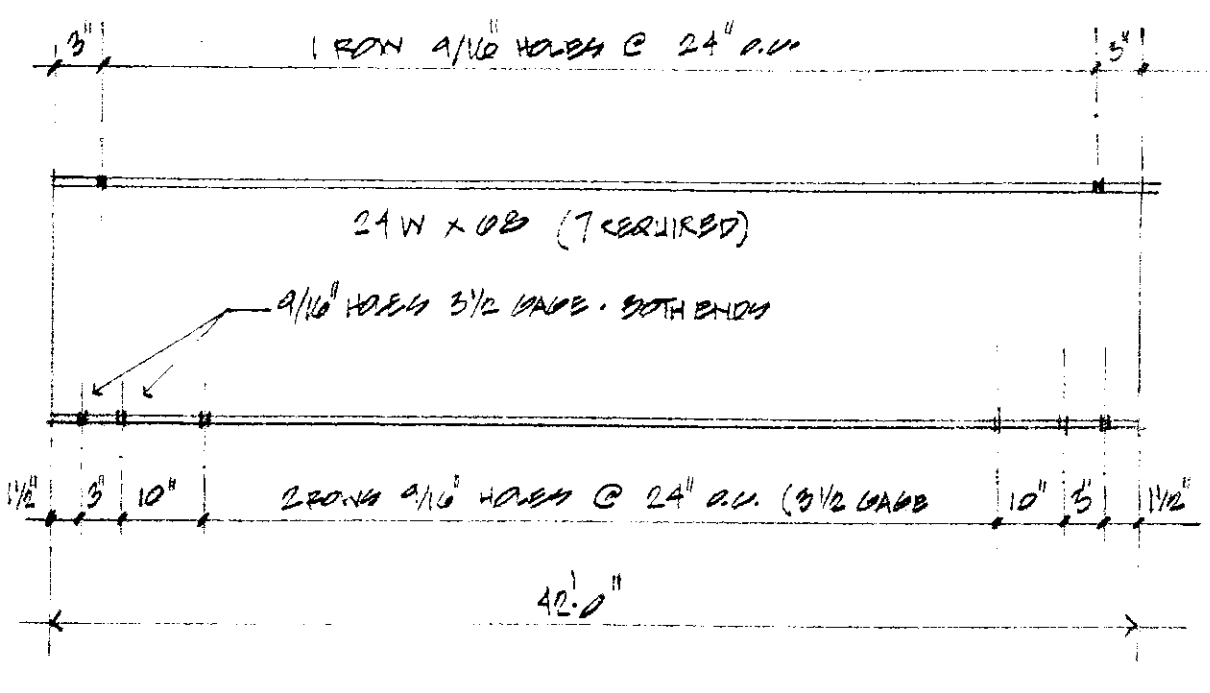 3" 1 ROW 9/16" HOLES @ 24" O.C. 3"
24 W x 68 (7 REQUIRED)
9/16" HOLES 3 1/2 GAGE . BOTH ENDS
1 1/2" 3" 10" 2 ROWS 9/16" HOLES @ 24" O.C. (3 1/2 GAGE 10" 3" 1 1/2"
42'.0"